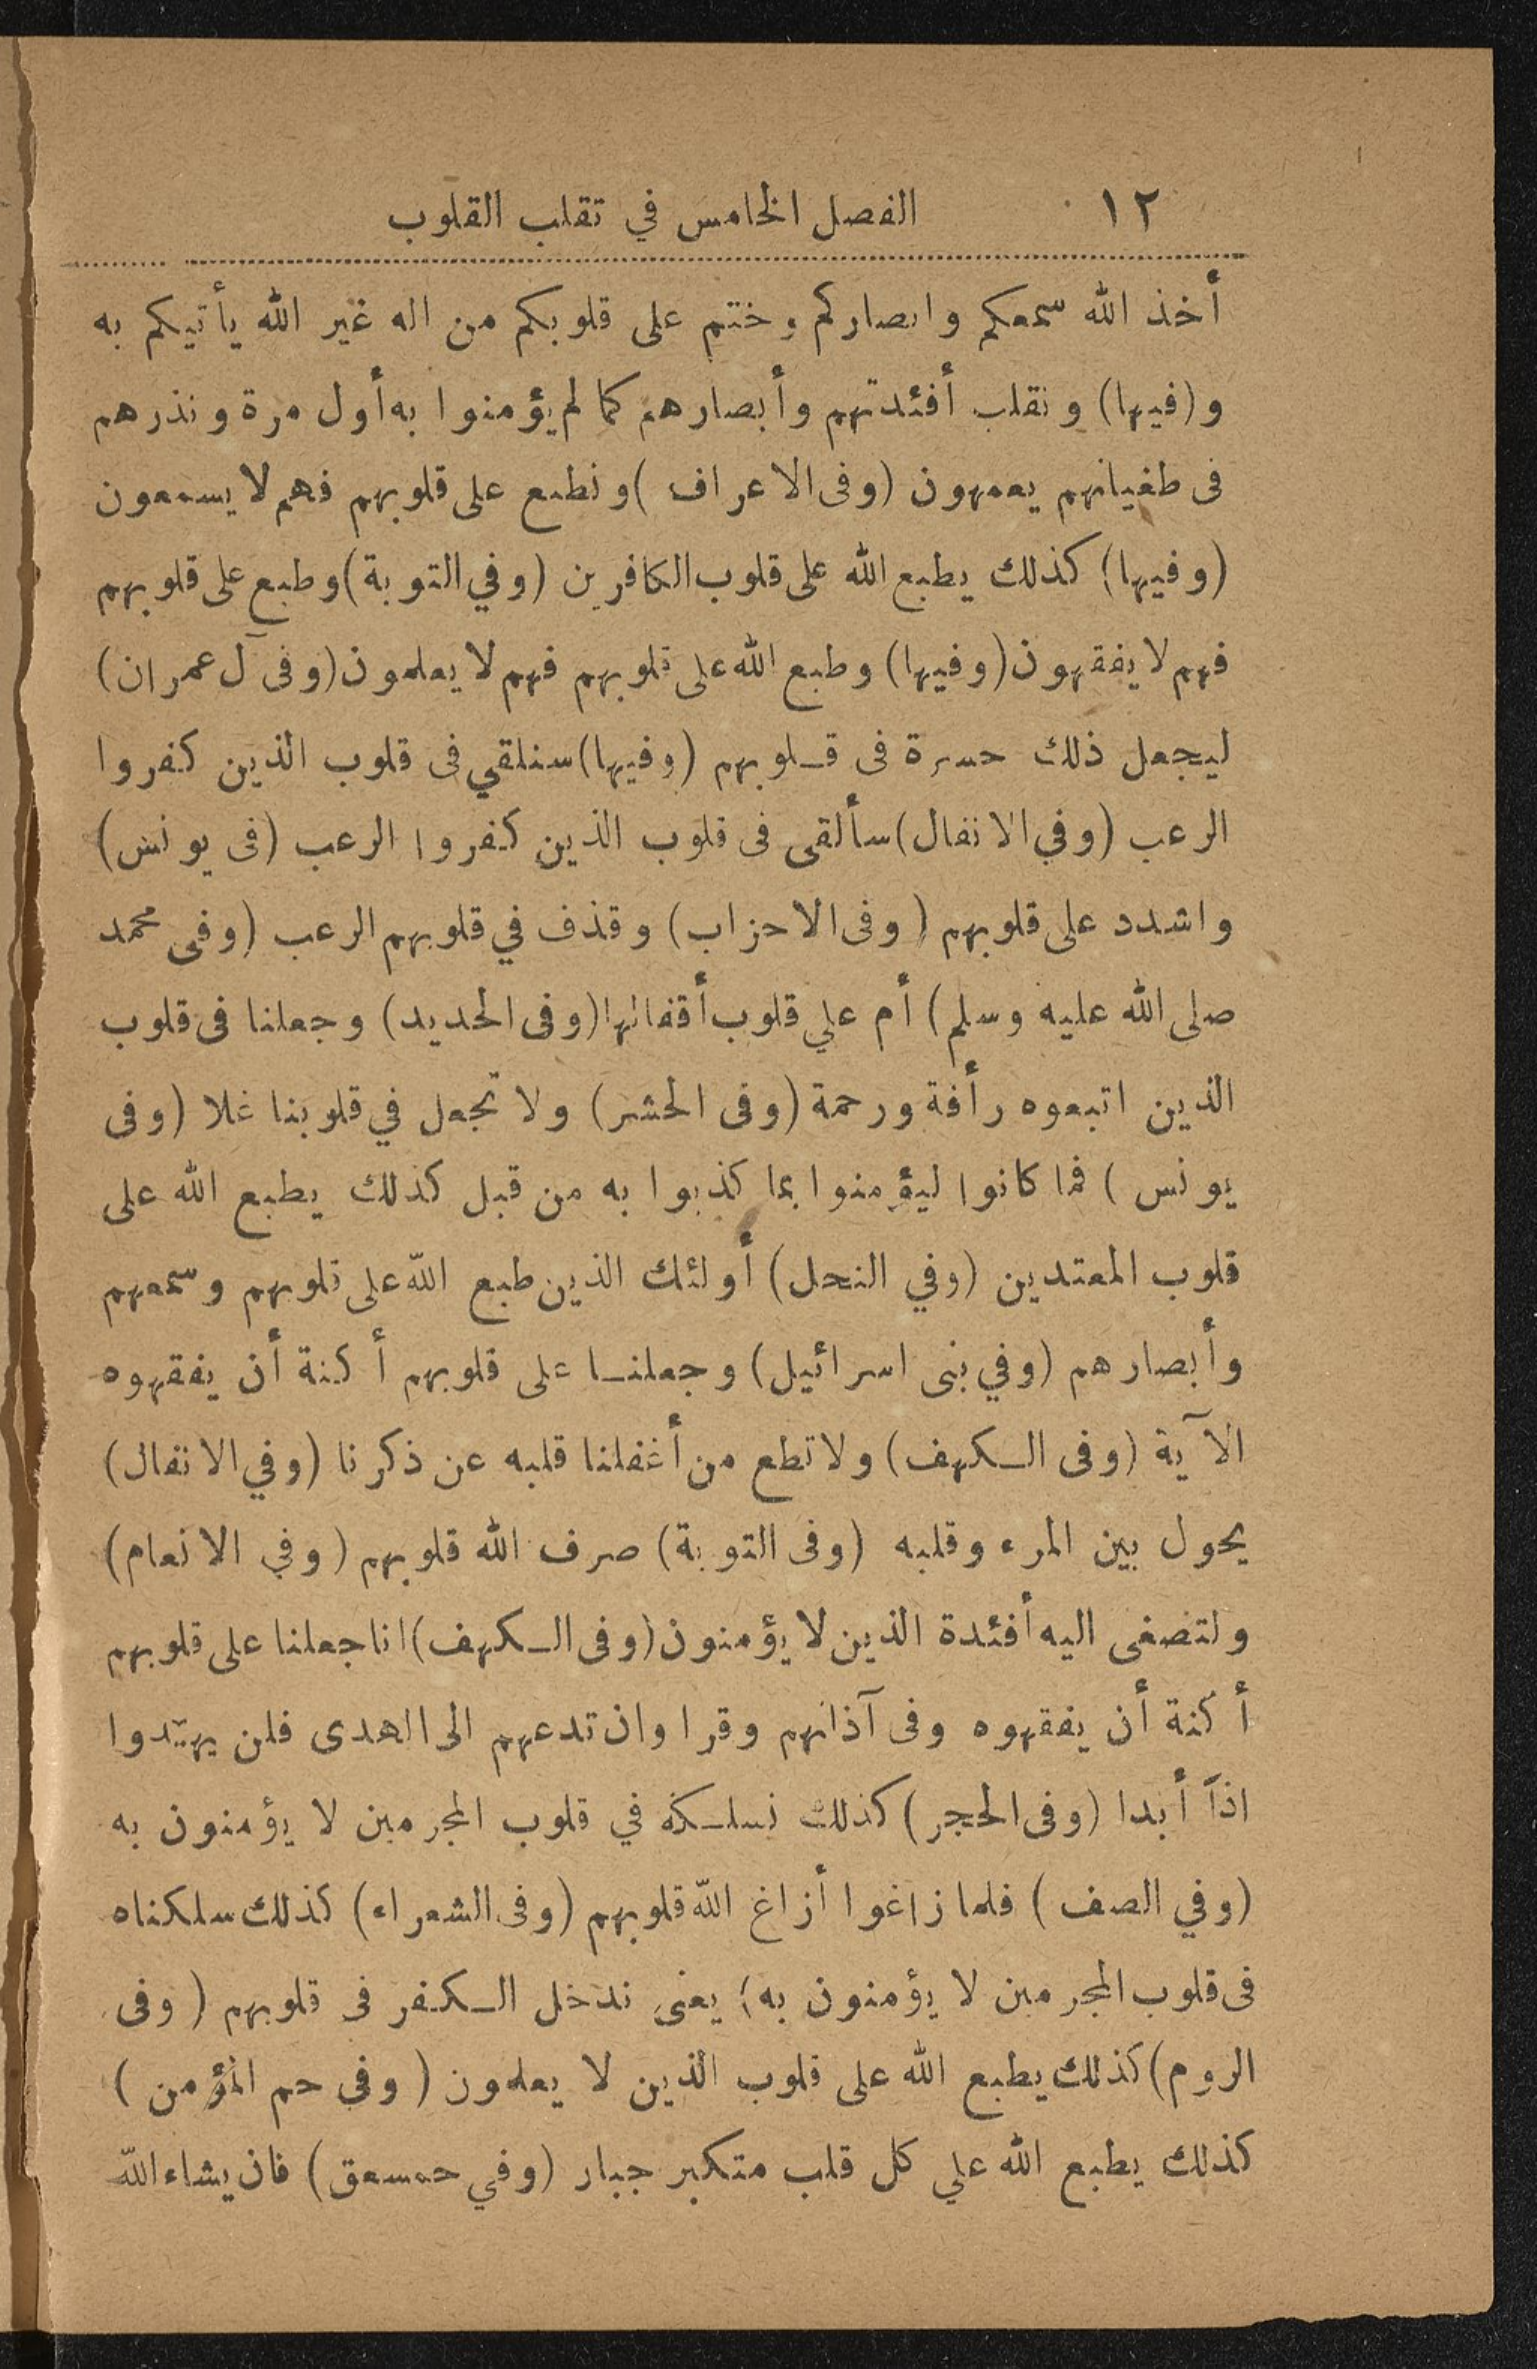 ١٢ الفصل الخامس في تقلب القلوب
أخذ الله سمعكم وابصاركم وختم على قلوبكم من اله غير الله يأتيكم به
و(فيها) ونقلب أفئدتهم وأبصارهم كما لم يؤمنوا به أول مرة ونذرهم
فى طغيانهم يعمهون (وفى الاعراف) ونطبع على قلوبهم فهم لا يسمعون
(وفيها) كذلك يطبع الله على قلوب الكافرين (وفي التوبة) وطبع على قلوبهم
فهم لا يفقهون (وفيها) وطبع الله على قلوبهم فهم لا يعلمون (وفى آل عمران)
ليجعل ذلك حسرة فى قـلوبهم (وفيها) سنلقي فى قلوب الذين كفروا
الرعب (وفي الانفال) سألقى فى قلوب الذين كفروا الرعب (فى يونس)
واشدد على قلوبهم (وفى الاحزاب) وقذف في قلوبهم الرعب (وفى محمد
صلى الله عليه وسلم) أم علي قلوب أقفالها (وفى الحديد) وجعلنا فى قلوب
الذين اتبعوه رأفة ورحمة (وفى الحشر) ولا تجعل في قلوبنا غلا (وفى
يونس) فما كانوا ليؤمنوا بما كذبوا به من قبل كذلك يطبع الله على
قلوب المعتدين (وفي النحل) أولئك الذين طبع الله على قلوبهم وسمعهم
وأبصارهم (وفي بنى اسرائيل) وجعلنـا على قلوبهم أكنة أن يفقهوه
الآية (وفى الـكهف) ولا تطع من أغفلنا قلبه عن ذكرنا (وفي الانفال)
يحول بين المرء وقلبه (وفى التوبة) صرف الله قلوبهم (وفي الانعام)
ولتصغى اليه أفئدة الذين لا يؤمنون (وفى الـكهف) انا جعلنا على قلوبهم
أكنة أن يفقهوه وفى آذانهم وقرا وان تدعهم الى الهدى فلن يهتدوا
اذاً أبدا (وفى الحجر) كذلك نسلـكه في قلوب المجرمين لا يؤمنون به
(وفي الصف) فلما زاغوا أزاغ الله قلوبهم (وفى الشعراء) كذلك سلكناه
فى قلوب المجرمين لا يؤمنون به؛ يعنى ندخل الـكفر فى قلوبهم (وفى
الروم) كذلك يطبع الله على قلوب الذين لا يعلمون (وفي حم المؤمن)
كذلك يطبع الله علي كل قلب متكبر جبار (وفي حمسعق) فان يشاء الله